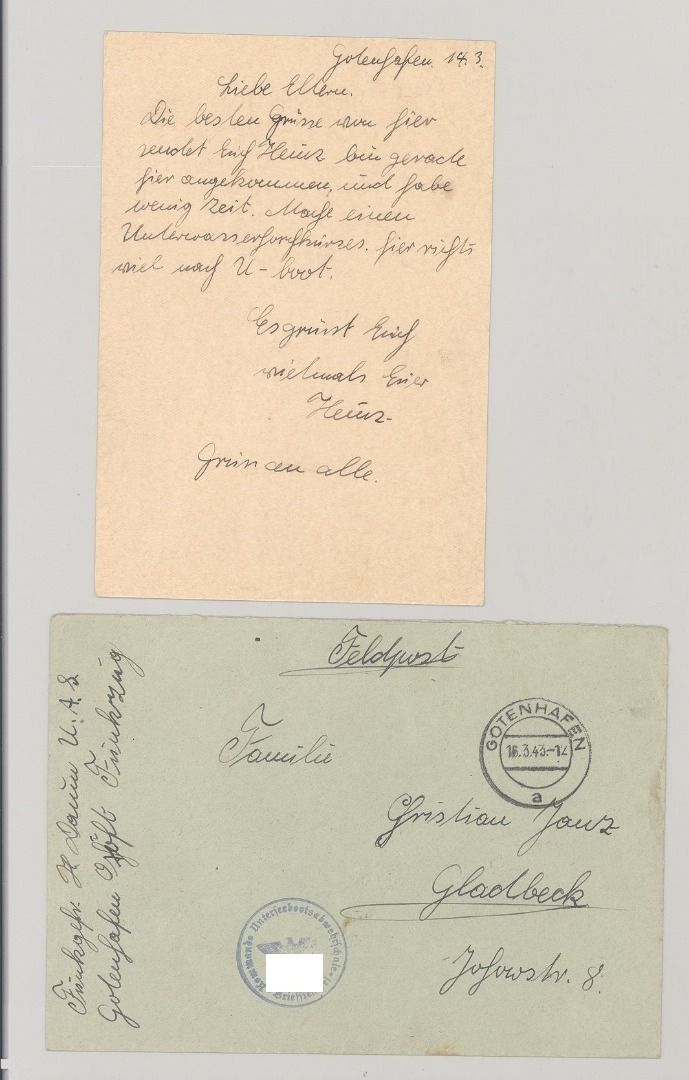 Gotenhafen. 14.3.
Liebe Eltern.
Die besten Grüsse von hier
sendet Euch Heinz bin gerade
hier angekommen, und habe
wenig Zeit. Mache einen
Unterwasserhorchkurses. hier riechts
viel nach U-boot.
Es grüsst Euch
vielmals Euer
Heinz
Gruss an alle.
Feldpost
GOTENHAFEN
16.3.43.-12
a
Familie
Christian Janz
Gladbeck
Johowstr. 8.
Funkgefr. H Daum U.A.S
Gotenhafen Oxhöft Funkzug
Kommando Unterseebootsabwehrschule